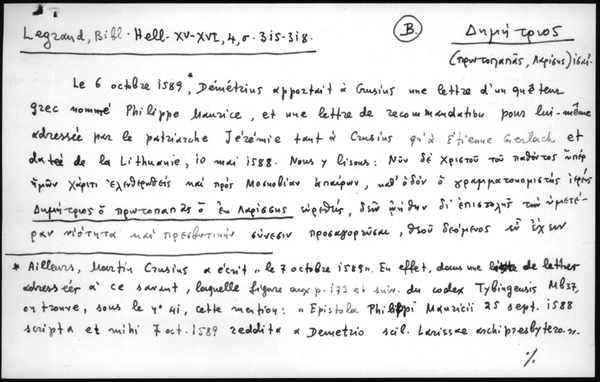 Legrand, Bibl. Hell. XV-XVI, 4, σ. 315-318. B. Δημήτριος
(πρωτοπαπᾶς, Λαρίσης)
Le 6 octobre 1589,* Démétrius apportait à Crusius une lettre d'un quêteur
grec nommé Philippe Maurice, et une lettre de recommandation pour lui-même
adressée par le patriarche Jérémie tant à Crusius qu'à Etienne Gerlach et
datée de la Lithuanie, 10 mai 1588. Nous y lisons: Νῦν δὲ Χριστοῦ τοῦ παθόντος ὑπὲρ
ἡμῶν χάριτι ἐλευθερωθεὶς καὶ πρὸς Μοσκοβίαν ἀπαίρων, καθ' ὁδὸν ὁ γραμματοκομιστὴς ἱερεὺς
Δημήτριος ὁ πρωτοπαπᾶς ὁ ἐκ Λαρίσσης εὑρεθείς, δεῖν ᾠήθην δι' ἐπιστολῆς τὴν ὑμετέ-
ραν νεότητα καὶ πρεσβυτικὴν σύνεσιν προσαγορεῦσαι, θεοῦ δεόμενος εὖ ἔχειν
* Ailleurs, Martin Crusius a écrit « le 7 octobre 1589 ». En effet, dans une de lettres
adressées à ce savant, laquelle figure aux p. 173 et suiv. du codex Tybingensis Mb37,
on trouve, sous le nº 41, cette mention: « Epistola Philippi Mauricii 25 sept. 1588
scripta et mihi 7 oct. 1589 reddita a Demetrio scil. Larissae archipresbytero. ».
%